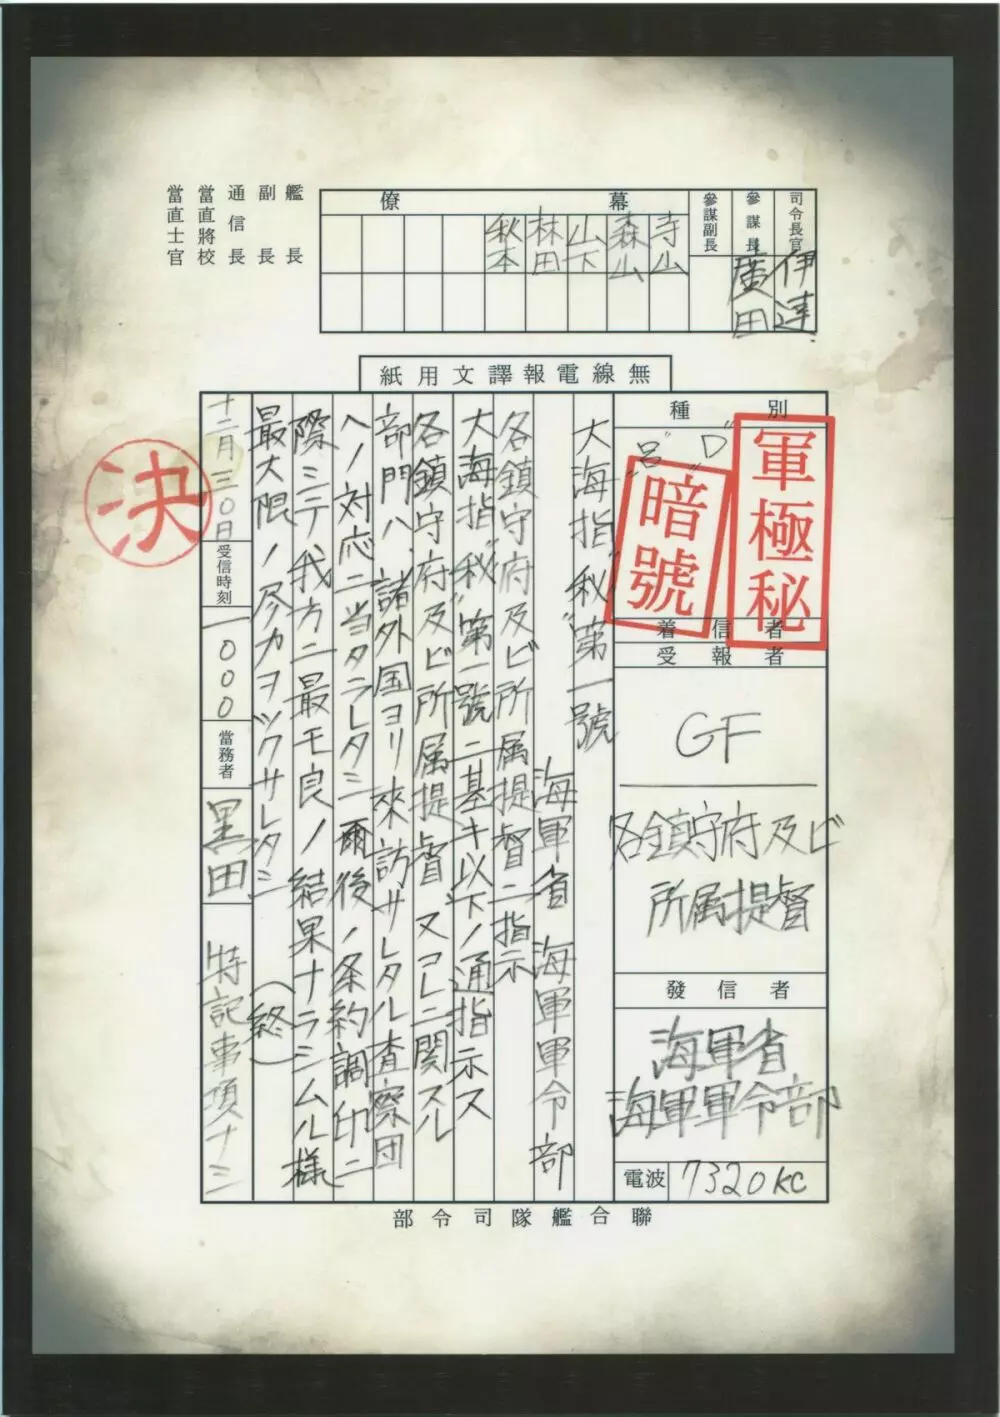 司令長官
伊達
參謀長
廣田
參謀副長
幕僚
寺山
森山
山下
林田
秋本
艦長
副長
通信長
當直將校
當直士官
無線電報譯文用紙
種別
軍極秘
"D"
"呂"
暗號
着信者
受報者
GF
各鎮守府及ビ
所属提督
發信者
海軍省
海軍軍令部
電波
7320KC
大海指"秘"第一號
海軍省 海軍軍令部
各鎮守府及ビ所属提督ニ指示
大海指"秘"第一號ニ基キ以下ノ通指示ス
各鎮守府及ビ所属提督、又コレニ関スル
部門ハ、諸外国ヨリ来訪サレタル査察団
ヘノ対応ニ当タラレタシ 爾後ノ条約調印ニ
際シテ我方ニ最モ良ノ結果ナラシムル様
最大限ノ尽力ヲツクサレタシ (終)
十二月三〇日
受信時刻
一000
當務者
黒田
特記事項ナシ
決
聯合艦隊司令部